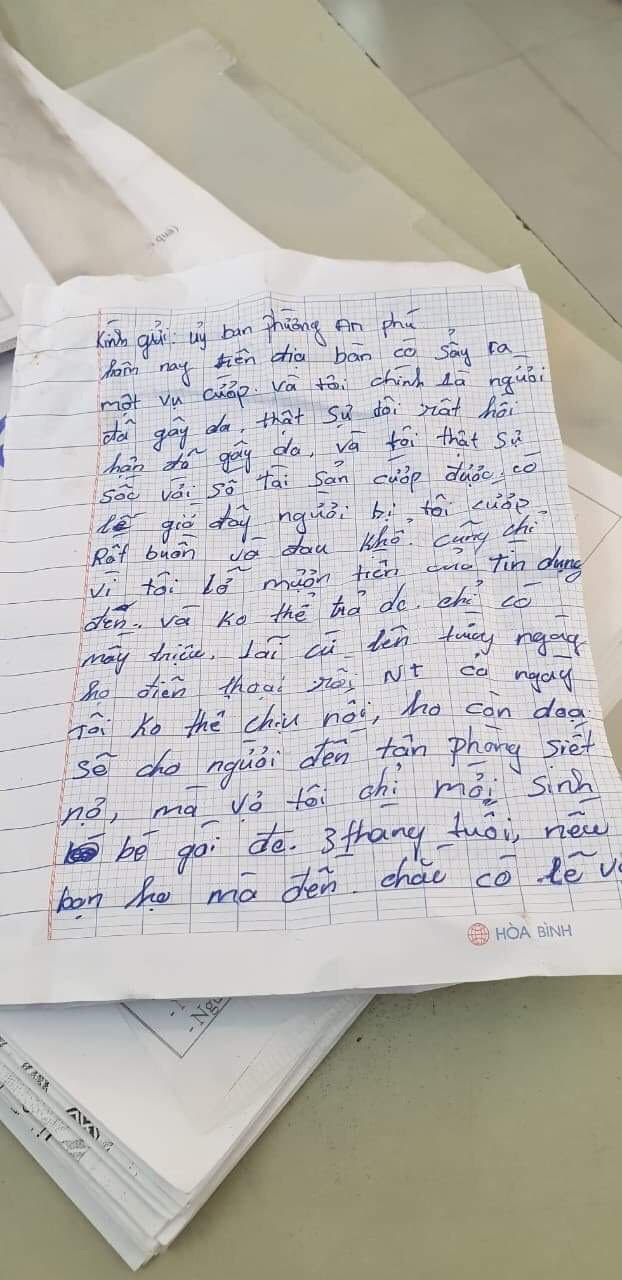 qua)
Kính gửi: ủy ban phường An phú
hôm nay trên địa bàn có sảy ra
một vụ cướp. và tôi chính là người
đã gây da, thật sự tôi rất hối
hận đã gây da, và tôi thật sự
sốc với số tài sản cướp được, có
lẽ giờ đây người bị tôi cướp
Rất buồn và đau khổ. cũng chỉ
vì tôi lỡ mượn tiền của tín dụng
đen. và ko thể trả dc. chỉ có
mấy triệu. lãi cứ lên từng ngày
họ điện thoại rồi Nt cả ngày
Tôi ko thể chịu nổi, họ còn dọa
sẽ cho người đến tận phòng siết
nợ, mà vợ tôi chỉ mới sinh
bé gái đc. 3 tháng tuổi, nếu
bọn họ mà đến. chắc có lẽ
HÒA BÌNH